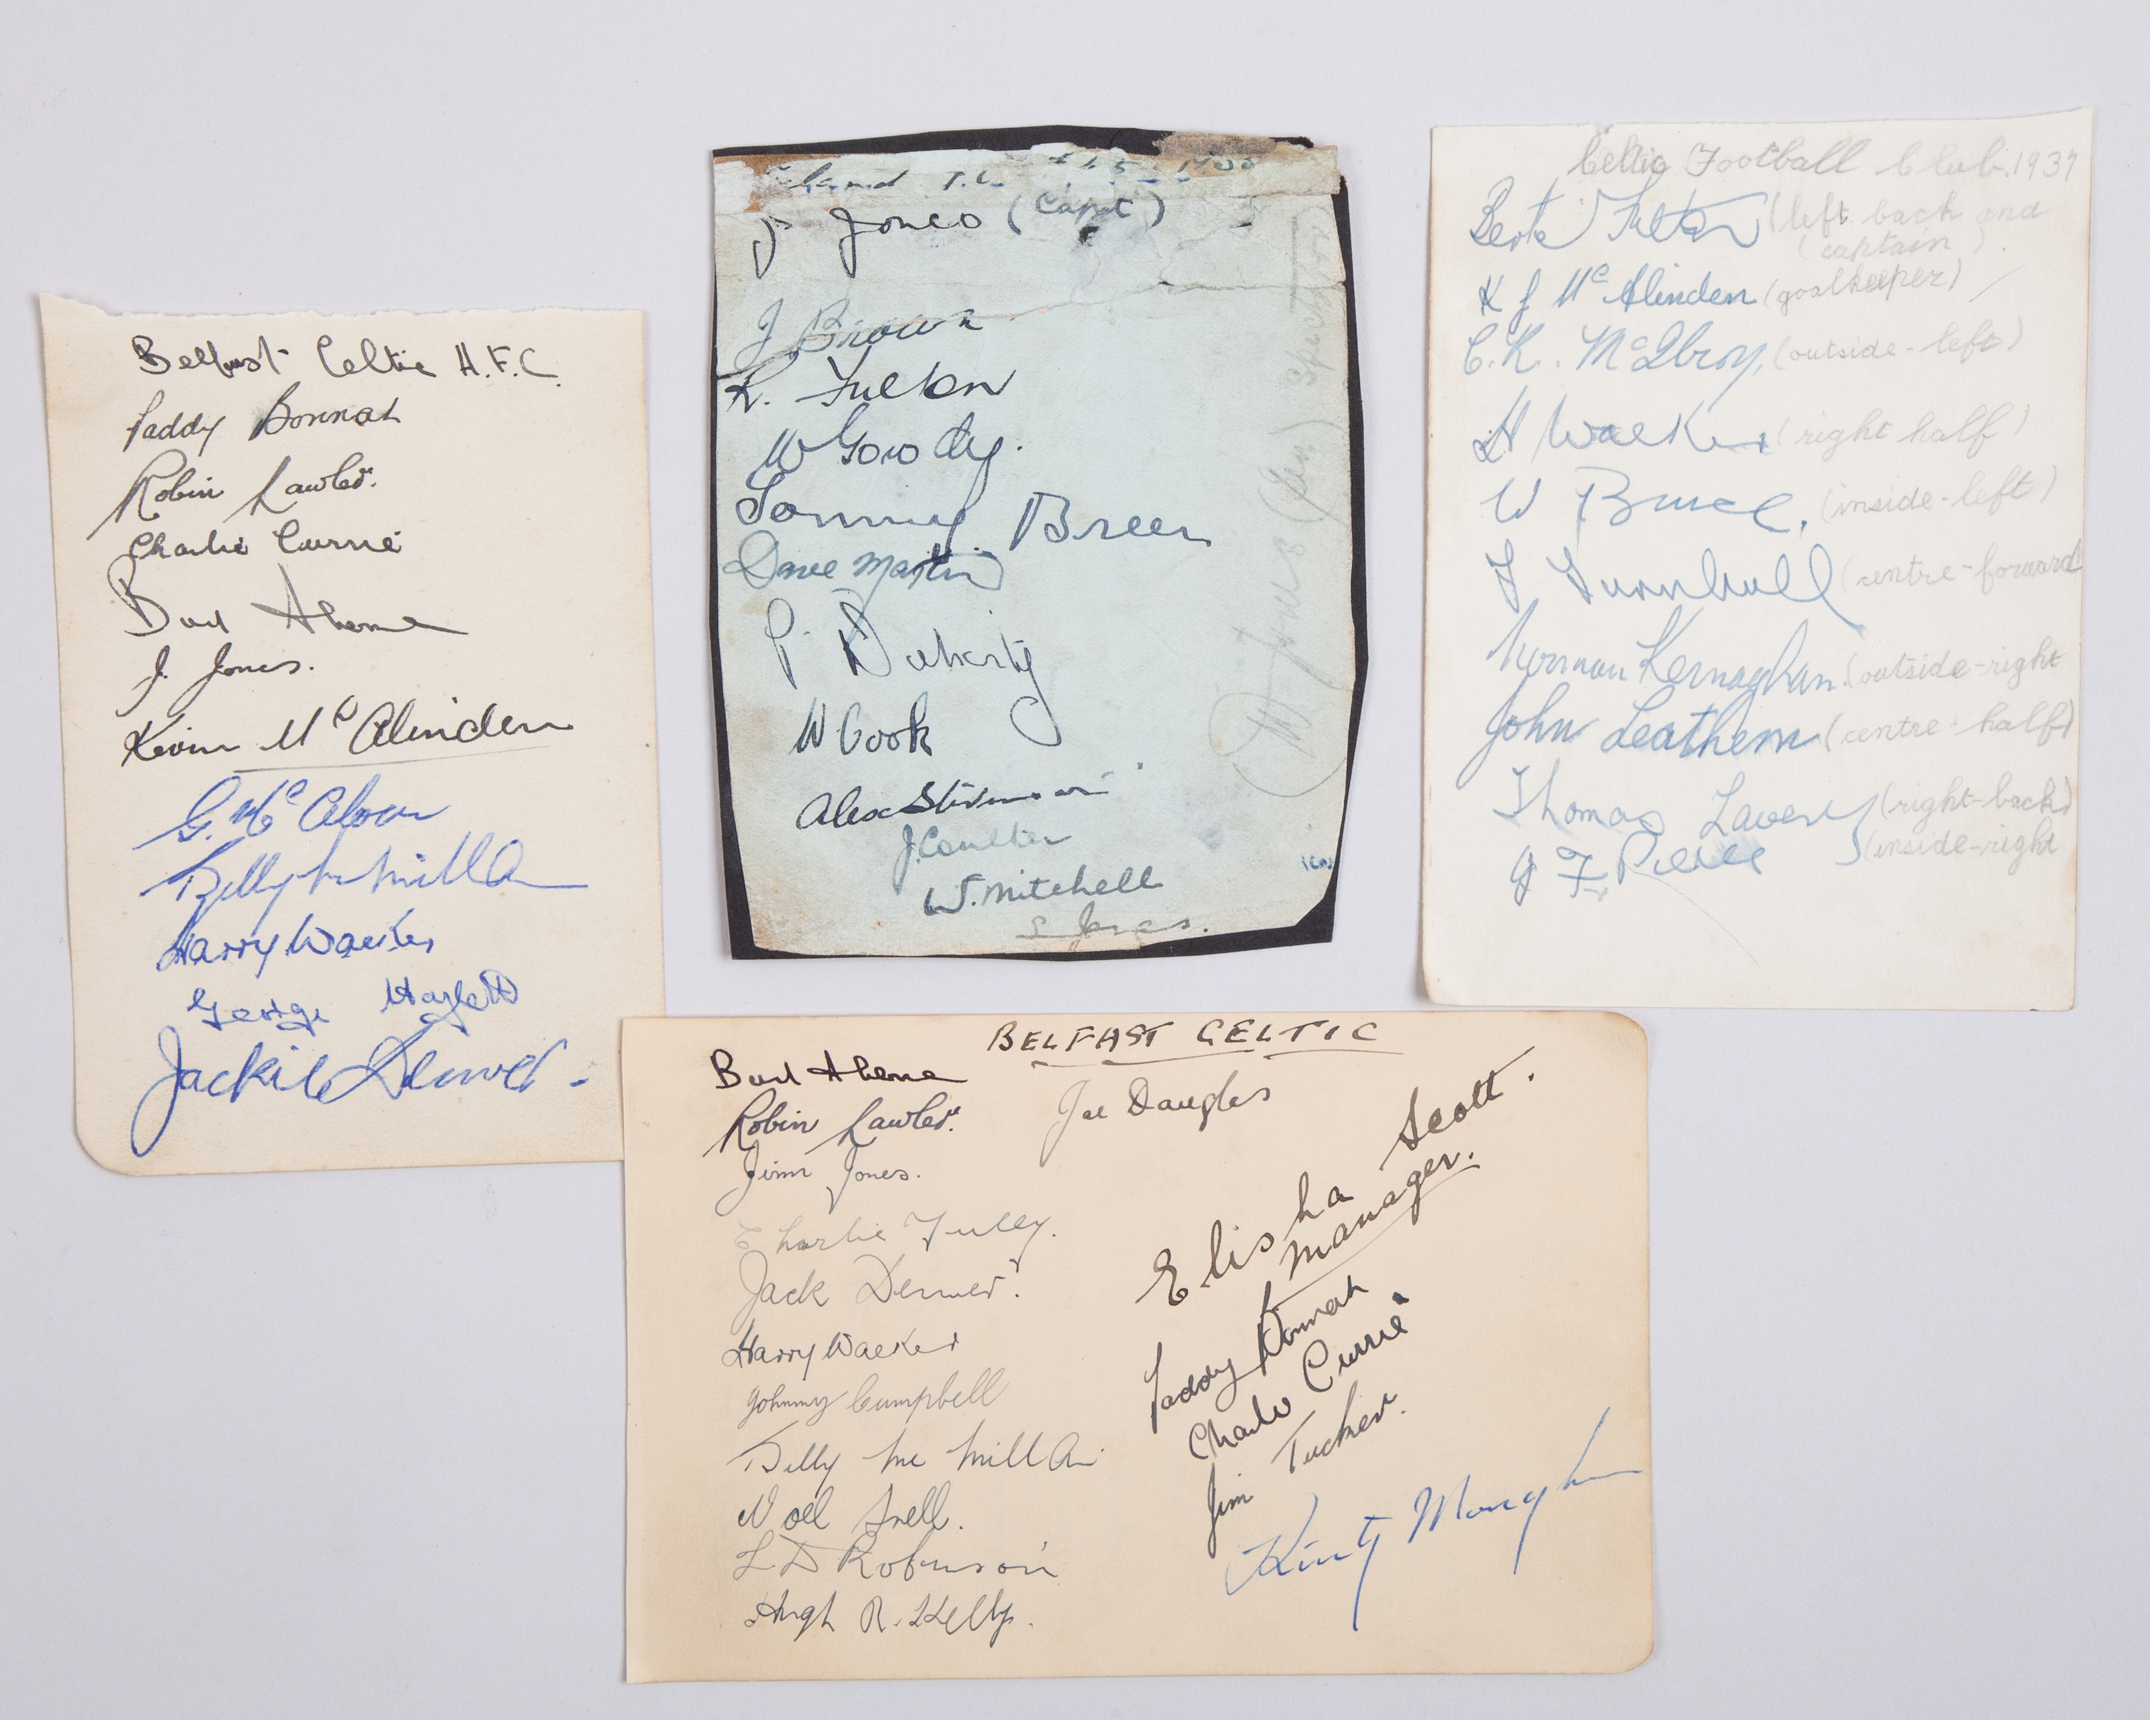 Belfast Celtic A.F.C.
Paddy Bonnar
Robin Lawler.
Charlie Currie
Bud Aherne
J. Jones.
Kevin McAlinden
G. McAloon
Billy McMillan
Harry Walker
George Hazlett
Jackie Denver
T.C.
Jones (Capt)
J Brown
K. Fulton
W Gowdy.
Tommy Breen
Dave Martin
P. Doherty
W Cook
Alex Stevenson
J Coulter
W. Mitchell
S Jones.
Celtic Football Club. 1937
Bertie Fulton (left back and
(captain)
K J McAlinden (goalkeeper)
C.K. McIlroy, (outside-left)
H Walker (right half)
W Bruce, (inside-left)
F Turnbull (centre-forward
Norman Kernaghan. (outside-right
John Leathem (centre-half)
Thomas Lavery (right-back)
Peirce (inside-right
BELFAST CELTIC
Bud Aherne
Joe Douglas
Robin Lawler.
Jimmy Jones.
Charlie Tully.
Jack Denver.
Harry Walker
Johnny Campbell
Billy McMillan
Noel Snell.
L D Robinson
Hugh R. Kelly.
Elisha Scott.
Manager.
Paddy Bonnar
Charlie Currie
Jim Tucker.